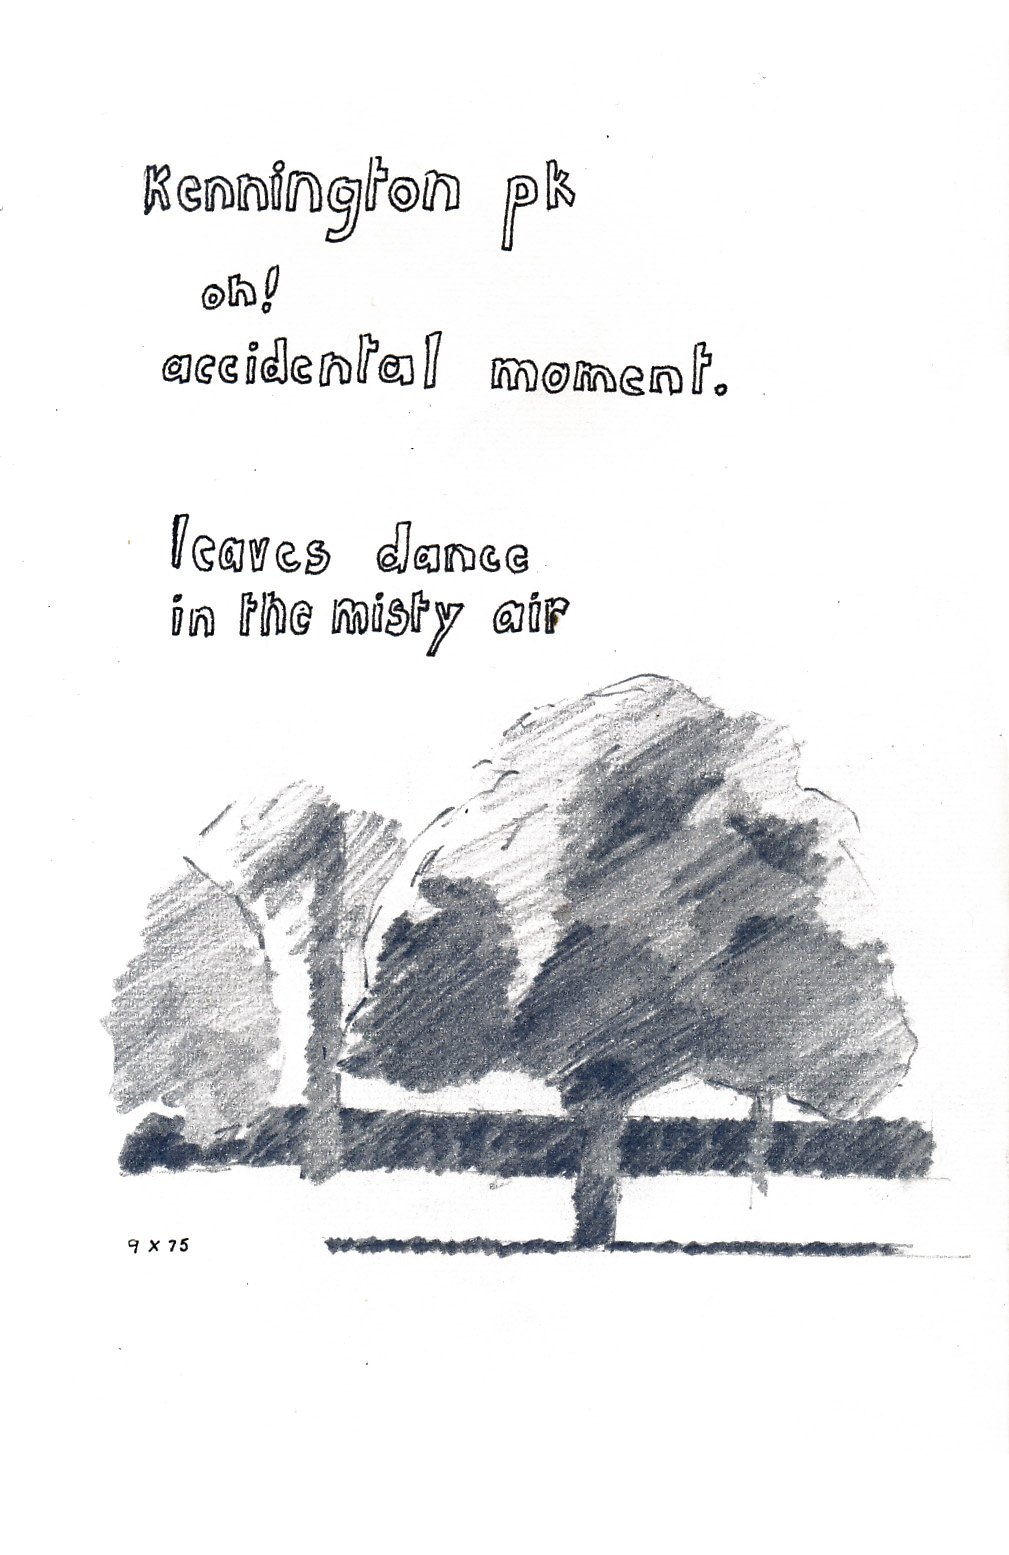 Kennington pk
oh!
accidental moment.
leaves dance
in the misty air
9 X 75